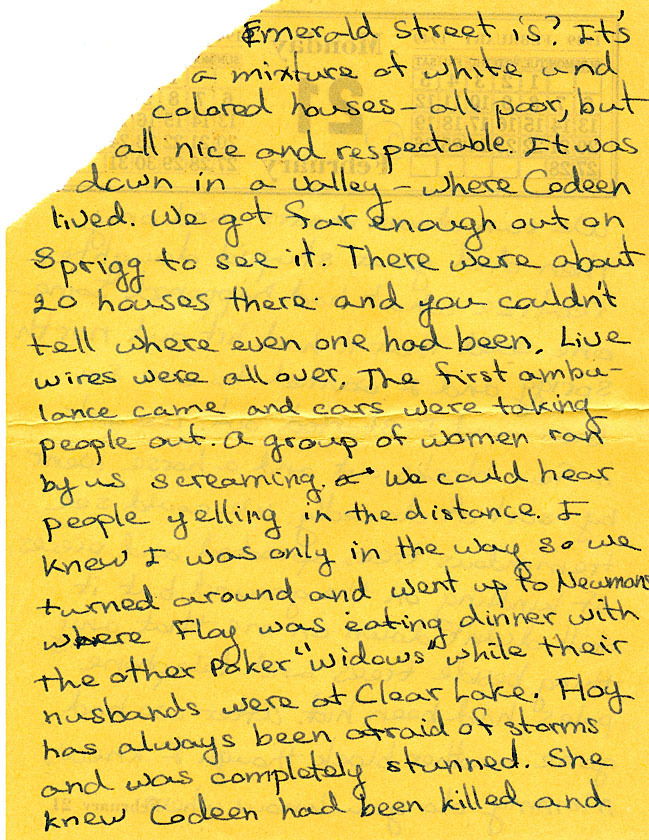 Emerald Street is? It's
a mixture of white and
colored houses - all poor, but
all nice and respectable. It was
down in a valley - where Codeen
lived. We got far enough out on
Sprigg to see it. There were about
20 houses there and you couldn't
tell where even one had been. Live
wires were all over. The first ambu-
lance came and cars were taking
people out. A group of women ran
by us screaming. We could hear
people yelling in the distance. I
knew I was only in the way so we
turned around and went up to Newmans
where Floy was eating dinner with
the other Poker "Widows" while their
husbands were at Clear Lake. Floy
has always been afraid of storms
and was completely stunned. She
knew Codeen had been killed and